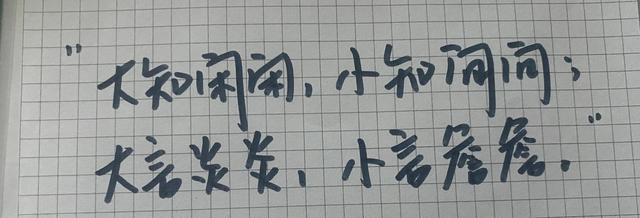 "大知闲闲，小知间间；
大言炎炎，小言詹詹。"